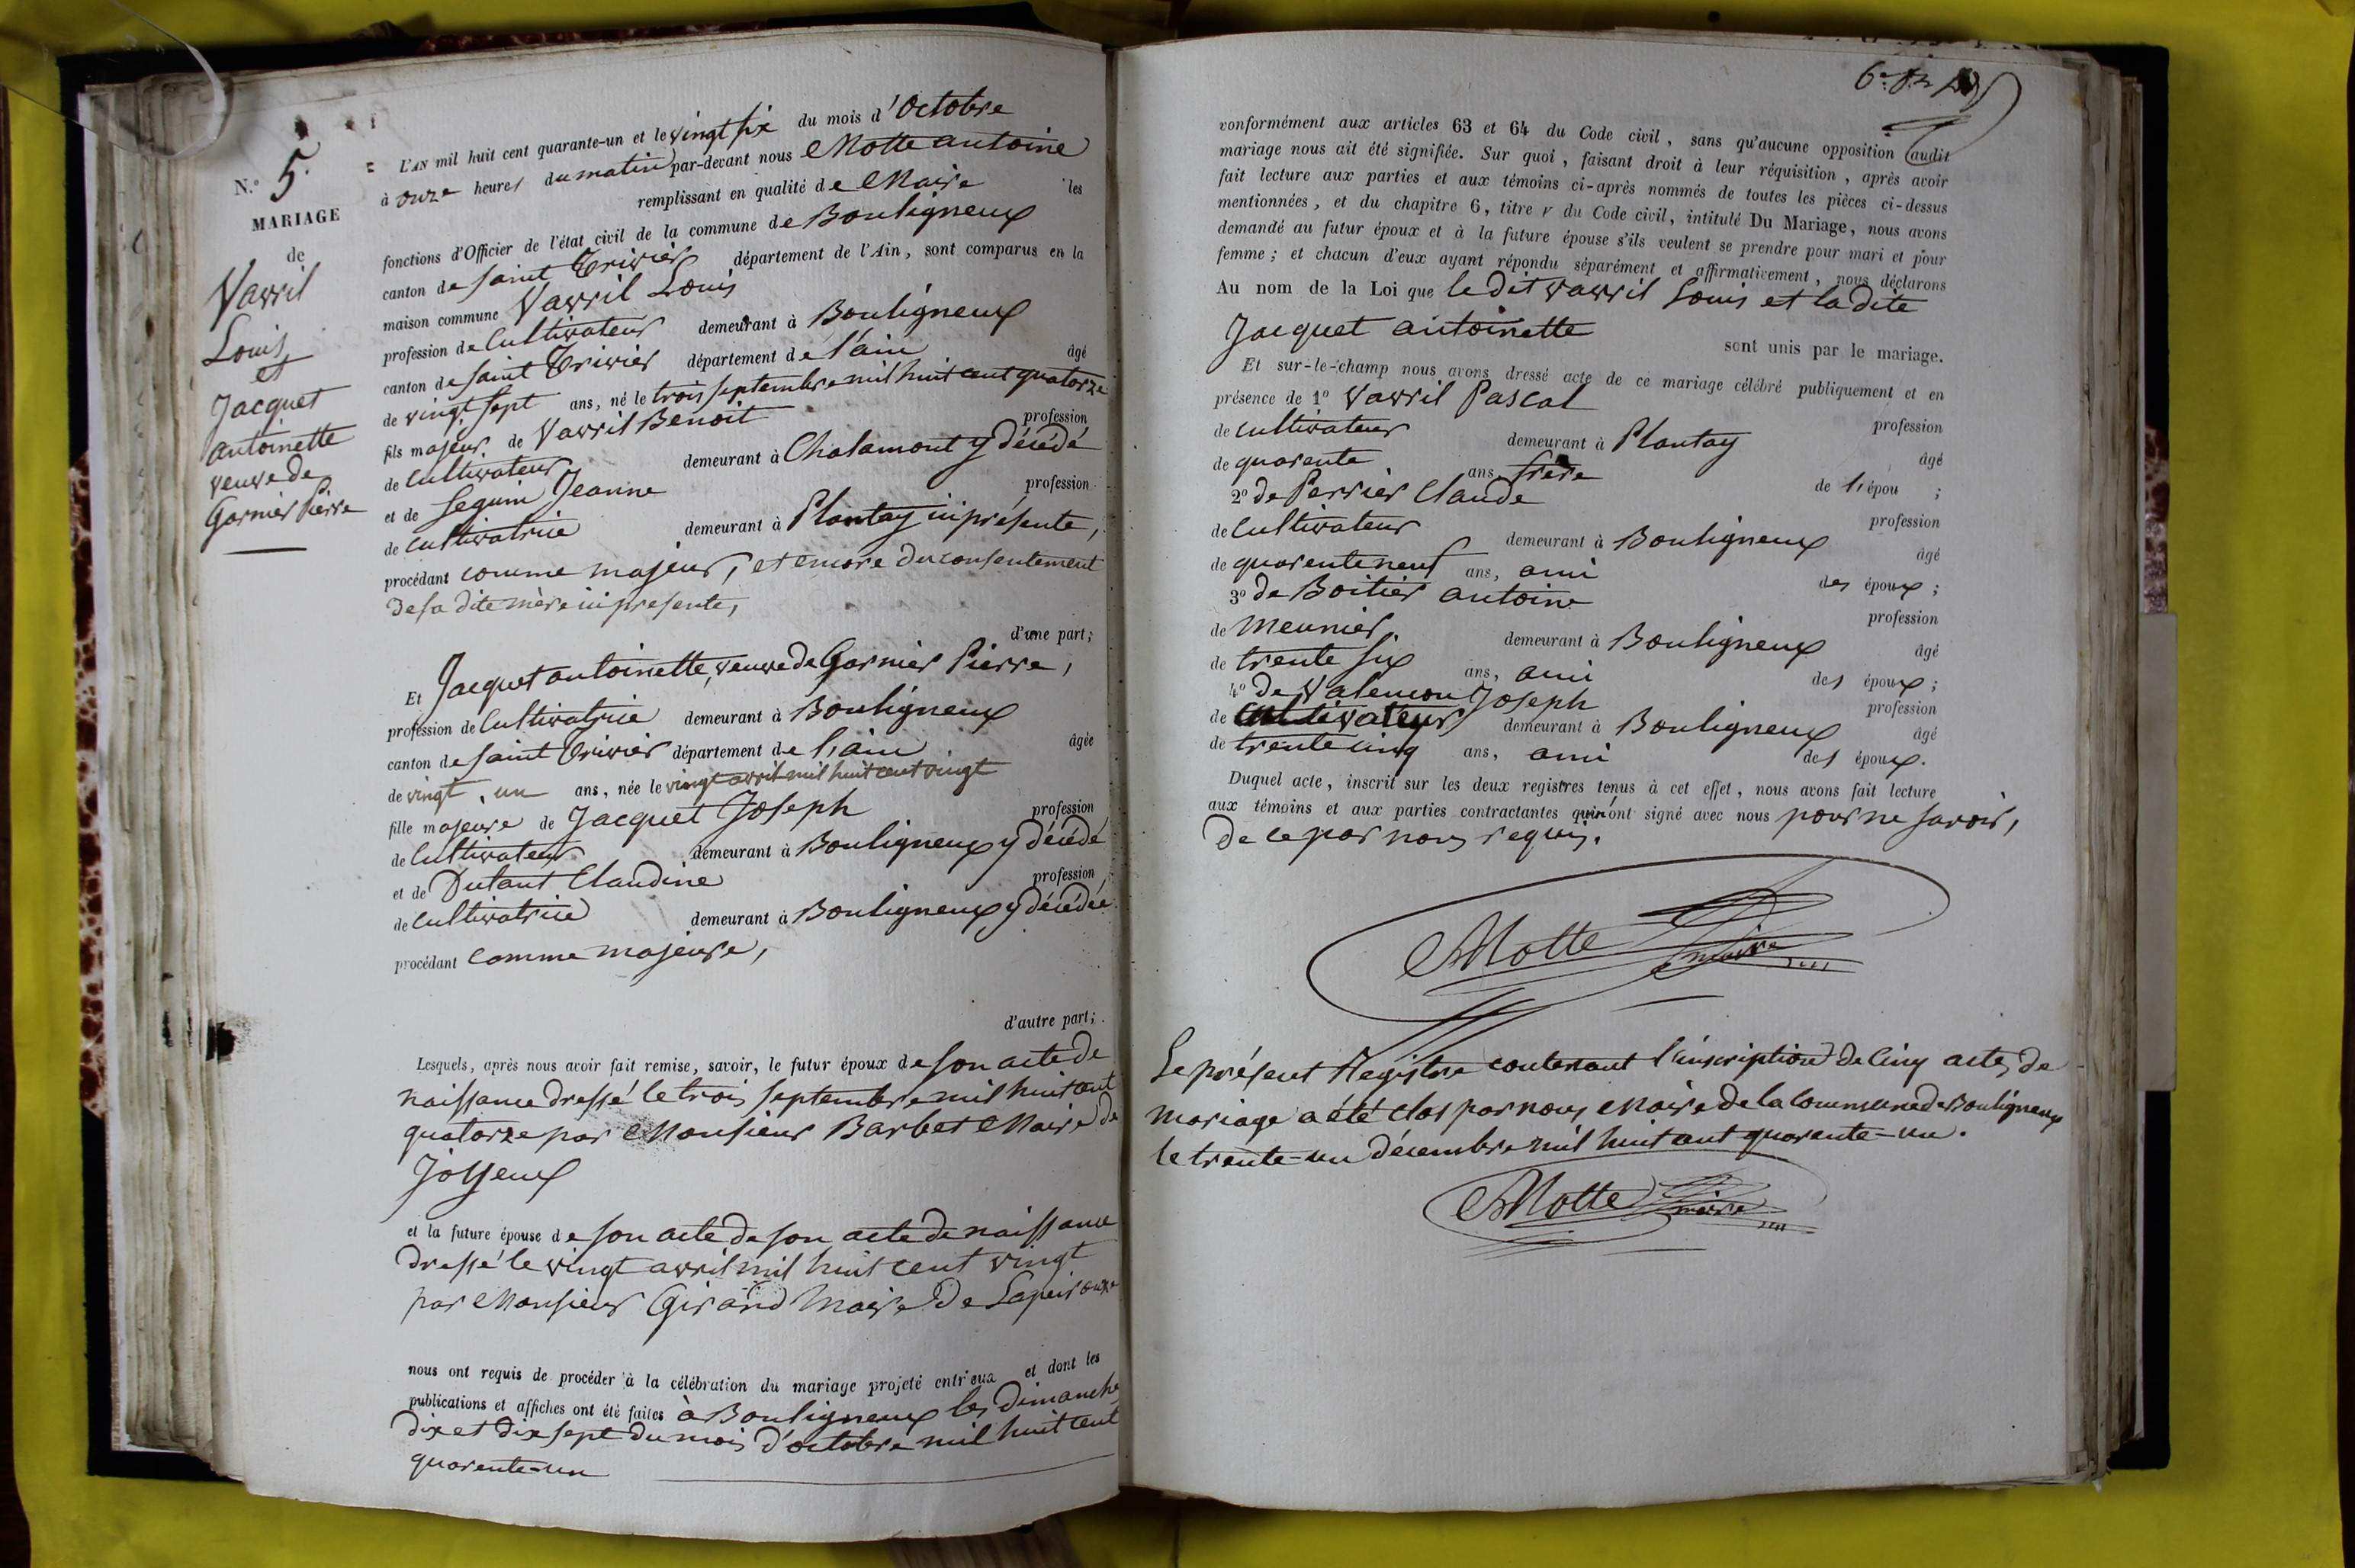 N.º 5.
MARIAGE
de
Vavril
Louis
et
Jacquet
antoinette
veuve de
Garnier Pierre
L'AN mil huit cent quarante-un et le vingt six du mois d'Octobre
à onze heures du matin par-devant nous Motte antoine
remplissant en qualité de Maire les
fonctions d'Officier de l'état civil de la commune de Bouligneux
canton de saint Trivier département de l'Ain, sont comparus en la
maison commune Vavril Louis
profession de Cultivateur demeurant à Bouligneux
canton de saint Trivier département de l'ain âgé
de vingt sept ans, né le trois septembre mil huit cent quatorze
fils majeur de Vavril Benoit profession
de Cultivateur demeurant à Chalamont y décédé
et de Seguin Jeanne profession
de cultivatrice demeurant à Plantay ici présente,
procédant comme majeur, et encore du consentement
de sa dite mère ici presente,
d'une part;
Et Jacquet antoinette, veuve de Garnier Pierre,
profession de Cultivatrice demeurant à Bouligneux
canton de saint Trivier département de l'ain âgée
de vingt un ans, née le vingt avril mil huit cent vingt
fille majeure de Jacquet Joseph profession
de Cultivateur demeurant à Bouligneux y décédé
et de Dutant Claudine profession
de Cultivatrice demeurant à Bouligneux y décédée
procédant comme majeure,
d'autre part;
Lesquels, après nous avoir fait remise, savoir, le futur époux de son acte de
naissance dressé le trois septembre mil huit cent
quatorze par Monsieur Barbet Maire de
Joyeux
et la future épouse de son acte de son acte de naissance
dressé le vingt avril mil huit cent vingt
par Monsieur Girand Maire de Lapeirouze
nous ont requis de procéder à la célébration du mariage projeté entr'eux et dont les
publications et affiches ont été faites à Bouligneux les Dimanches
dix et dix sept du mois d'octobre mil huit cent
quarente-un
conformément aux articles 63 et 64 du Code civil, sans qu'aucune opposition audit
mariage nous ait été signifiée. Sur quoi, faisant droit à leur réquisition, après avoir
fait lecture aux parties et aux témoins ci-après nommés de toutes les pièces ci-dessus
mentionnées, et du chapitre 6, titre v du Code civil, intitulé Du Mariage, nous avons
demandé au futur époux et à la future épouse s'ils veulent se prendre pour mari et pour
femme; et chacun d'eux ayant répondu séparément et affirmativement, nous déclarons
Au nom de la Loi que le dit vavril Louis et la dite
Jacquet antoinette
sont unis par le mariage.
Et sur-le-champ nous avons dressé acte de ce mariage célébré publiquement et en
présence de 1º Vavril Pascal profession
de cultivateur demeurant à Plantay âgé
de quarente ans, frère de l'épou ;
2º de Perrier Claude profession
de Cultivateur demeurant à Bouligneux âgé
de quarente neuf ans, ami des époux ;
3º de Boitier antoine profession
de Meunier demeurant à Bouligneux âgé
de trente six ans, ami des époux ;
4º de Valencon Joseph profession
de Cultivateur demeurant à Bouligneux âgé
de trente cinq ans, ami des époux.
Duquel acte, inscrit sur les deux registres tenus à cet effet, nous avons fait lecture
aux témoins et aux parties contractantes qui n'ont signé avec nous pour ne savoir,
de ce par nous requis.
Motte maire
Le présent Registre contenant l'inscription de Cinq actes de
mariage a été clos par nous Maire de la Commune de Bouligneux
le trente-un décembre mil huit cent quarente-un.
Motte maire